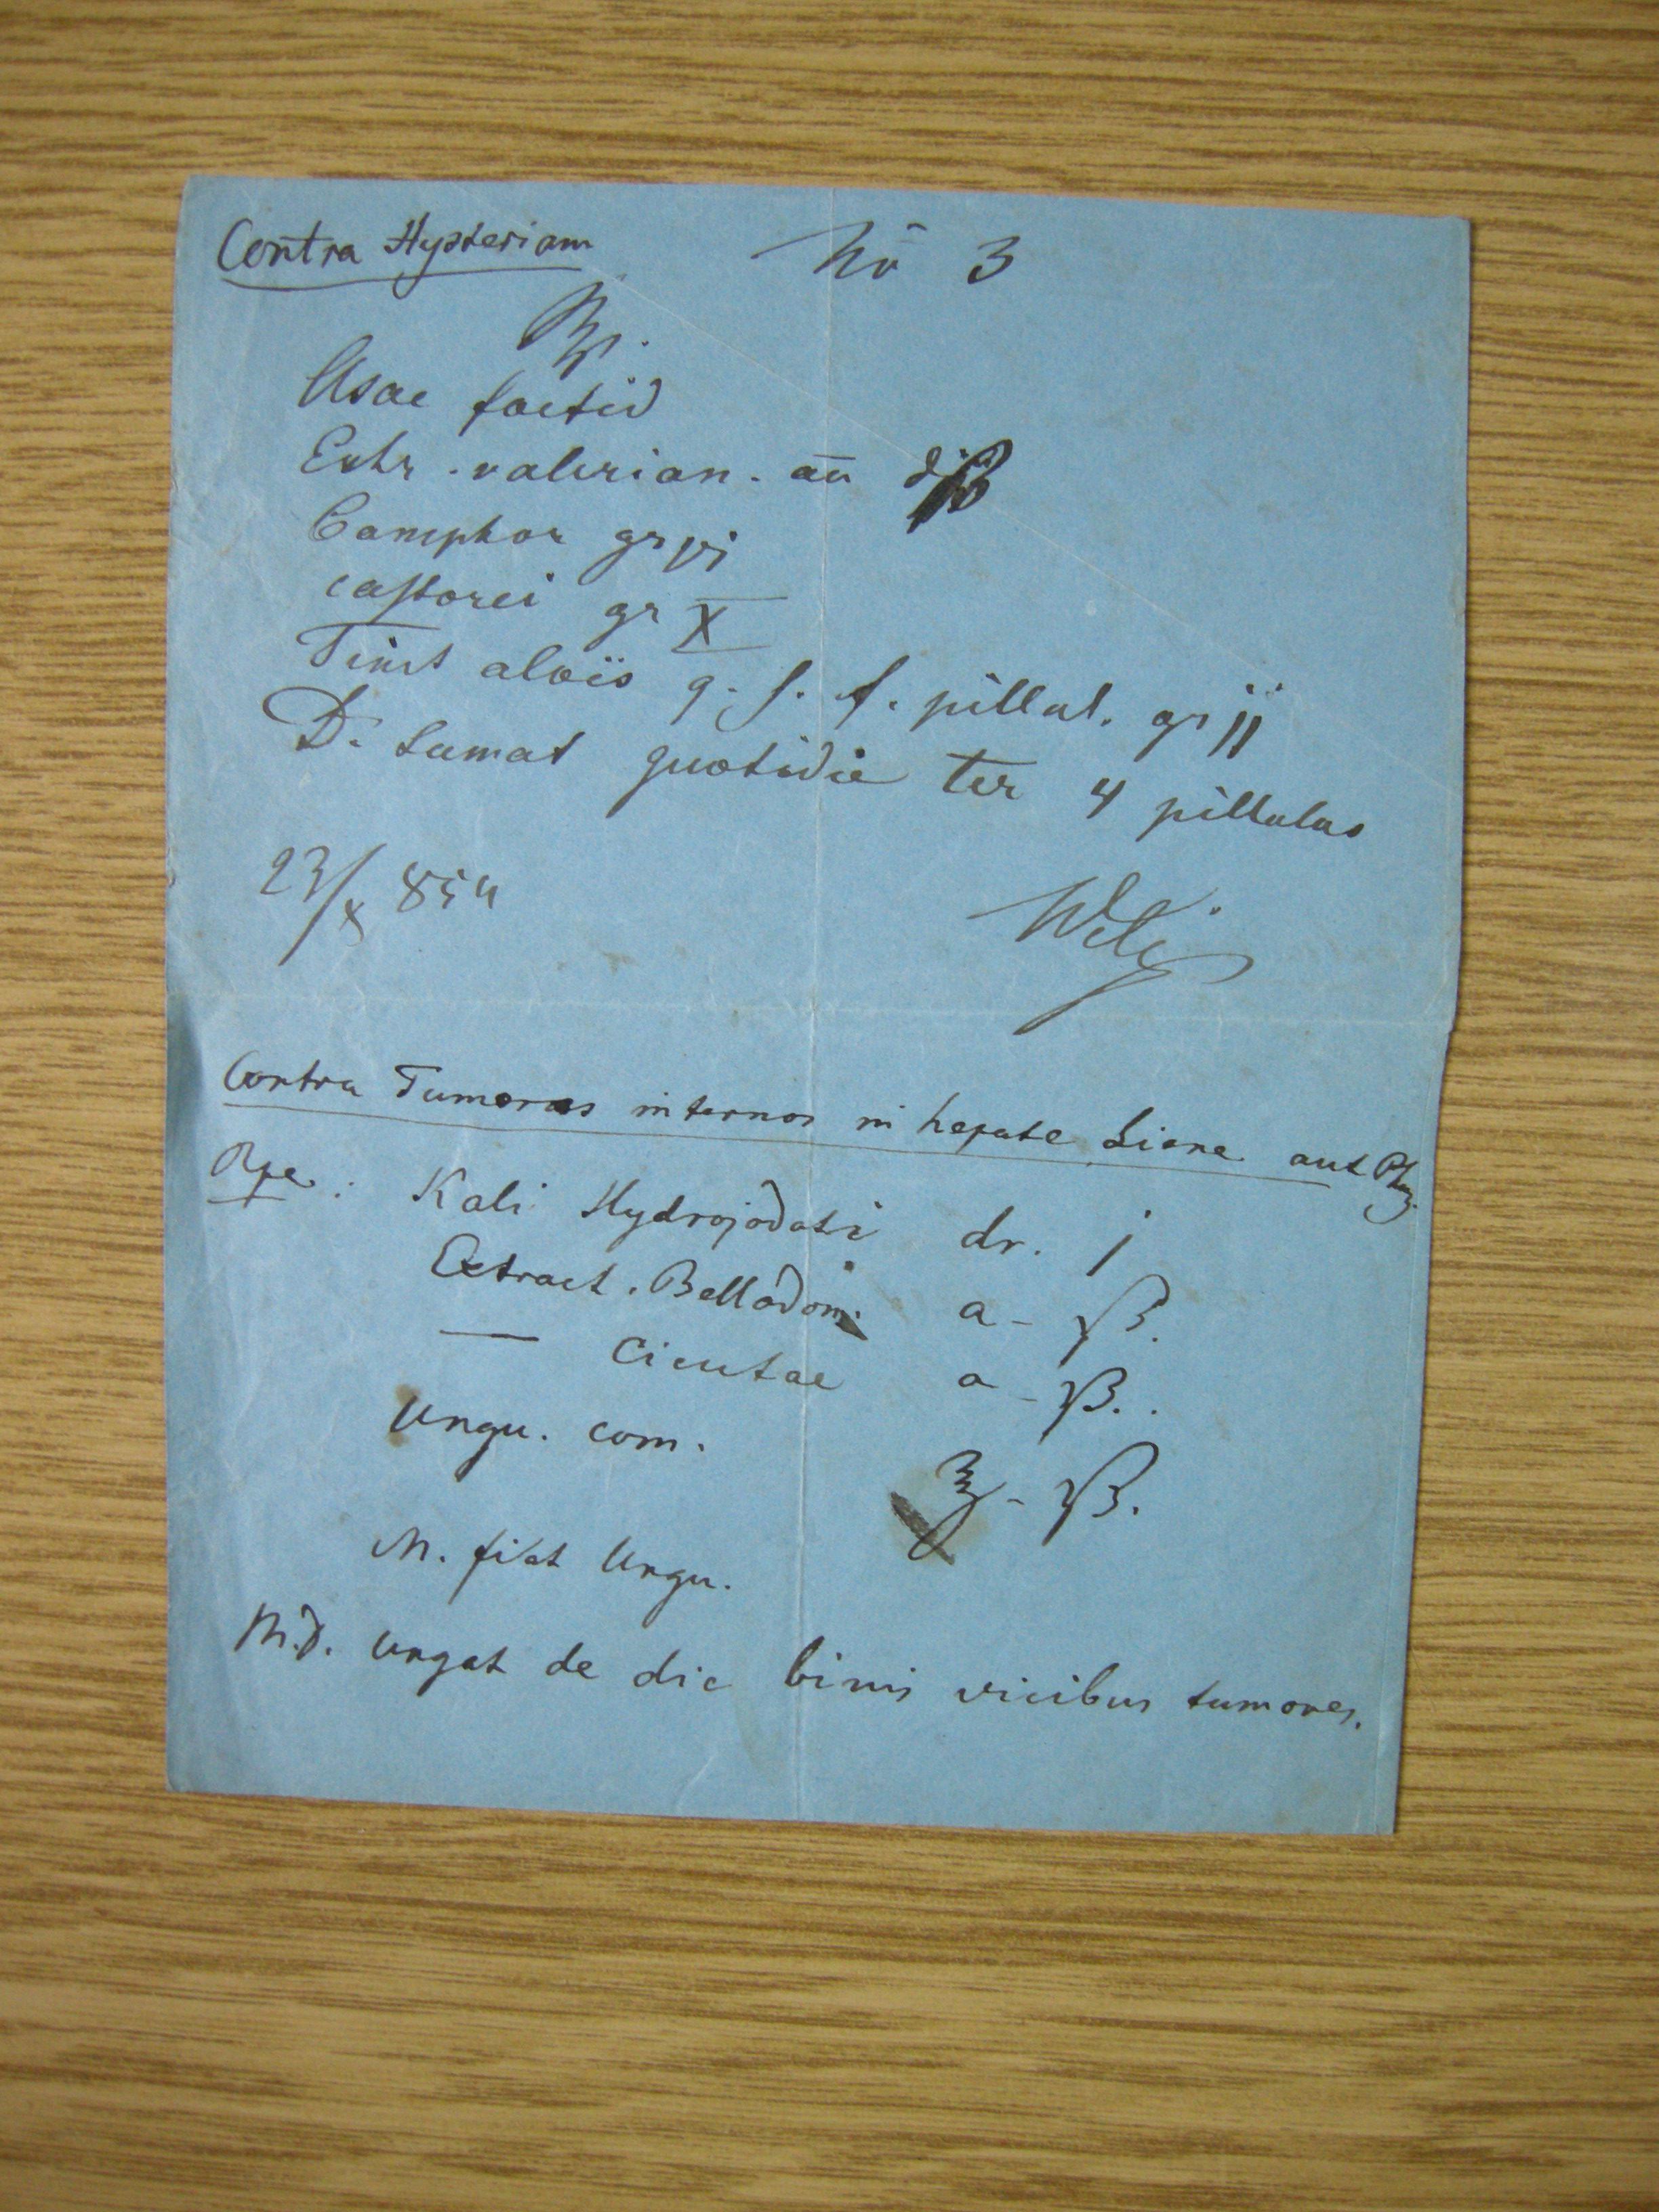 Contra Hysteriam No 3
Rp.
Asae foetid
Extr. valerian. aa
Camphor gr vj
castorei gr X
Tinct aloïs q. s. f. pillul. gr jj
D. Sumat quotidie ter 4 pillulas
23/X 854
Contra Tumores internos in hepate Liene aut
Rpe: Kali Hydrojodati dr. j
Extract. Belladon. a - ß.
— Cicutae a - ß..
Ungu. com. ℥ - ß.
M. fiat Ungu.
M.D. Ungat de die binis vicibus tumores.